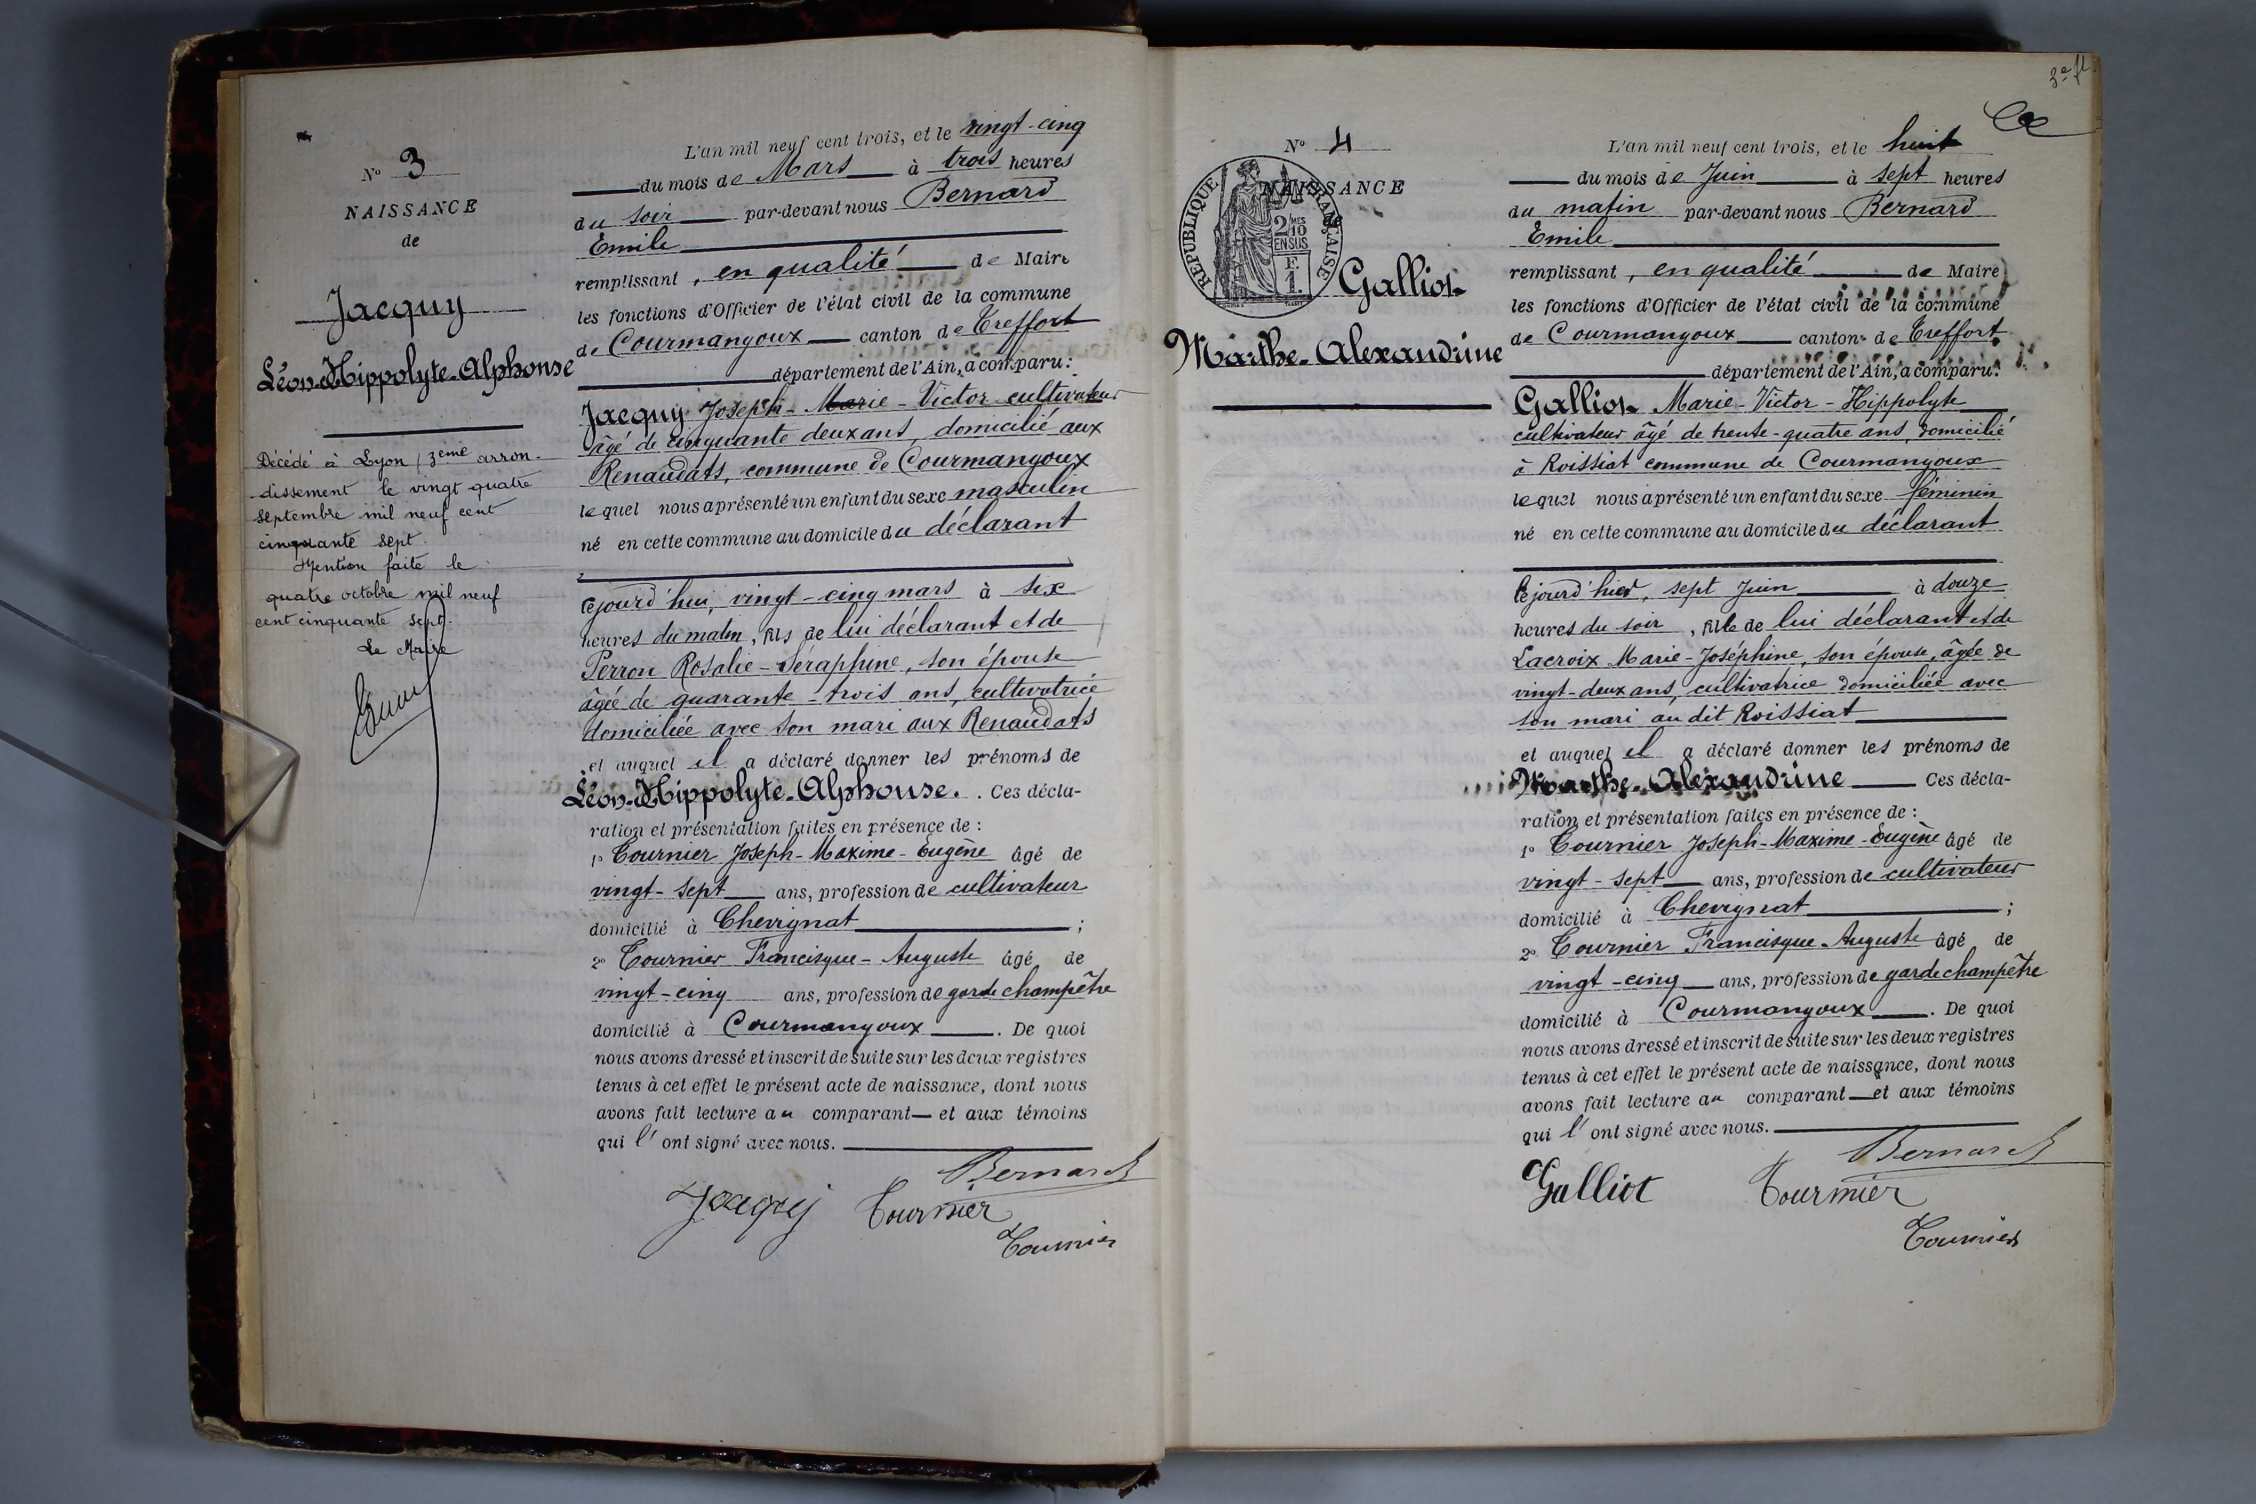 N° 3
NAISSANCE
de
Jacquy
Léon-Hippolyte-Alphonse
Décédé à Lyon, 3eme arron-
dissement le vingt quatre
septembre mil neuf cent
cinquante sept.
Mention faite le
quatre octobre mil neuf
cent cinquante sept.
Le Maire
L'an mil neuf cent trois, et le vingt-cinq
du mois de Mars à trois heures
du soir par-devant nous Bernard
Emile
remplissant, en qualité de Maire
les fonctions d'Officier de l'état civil de la commune
de Courmangoux canton de Treffort
département de l'Ain, a comparu:
Jacquy Joseph-Marie-Victor cultivateur
âgé de cinquante deux ans, domicilié aux
Renaudats, commune de Courmangoux
lequel nous a présenté un enfant du sexe masculin
né en cette commune au domicile du déclarant
cejourd'hui, vingt-cinq mars à six
heures du matin, fils de lui déclarant et de
Perron Rosalie-Séraphine, son épouse
âgée de quarante-trois ans, cultivatrice
domiciliée avec son mari aux Renaudats
et auquel il a déclaré donner les prénoms de
Léon-Hippolyte-Alphonse. Ces décla-
ration et présentation faites en présence de :
1° Tournier Joseph-Maxime-Eugène âgé de
vingt-sept ans, profession de cultivateur
domicilié à Chevignat ;
2° Tournier Francisque-Auguste âgé de
vingt-cinq ans, profession de garde champêtre
domicilié à Courmangoux. De quoi
nous avons dressé et inscrit de suite sur les deux registres
tenus à cet effet le présent acte de naissance, dont nous
avons fait lecture au comparant et aux témoins
qui l'ont signé avec nous.
Bernard
Jacquy Tournier
Tournier
3e fl.
N° 4
NAISSANCE
de
RÉPUBLIQUE FRANÇAISE
2/10 MES
EN SUS
F.
1.
Galliot
Marthe-Alexandrine
L'an mil neuf cent trois, et le huit
du mois de Juin à sept heures
du matin par-devant nous Bernard
Emile
remplissant, en qualité de Maire
les fonctions d'Officier de l'état civil de la commune
de Courmangoux canton de Treffort
département de l'Ain, a comparu:
Galliot Marie-Victor-Hippolyte
cultivateur âgé de trente-quatre ans, domicilié
à Roissiat commune de Courmangoux
lequel nous a présenté un enfant du sexe féminin
né en cette commune au domicile du déclarant
cejourd'hier, sept Juin à douze
heures du soir, fille de lui déclarant et de
Lacroix Marie-Joséphine, son épouse, âgée de
vingt-deux ans, cultivatrice domiciliée avec
son mari au dit Roissiat
et auquel il a déclaré donner les prénoms de
Marthe-Alexandrine Ces décla-
ration et présentation faites en présence de :
1° Tournier Joseph-Maxime-Eugène âgé de
vingt-sept ans, profession de cultivateur
domicilié à Chevignat ;
2° Tournier Francisque Auguste âgé de
vingt-cinq ans, profession de garde champêtre
domicilié à Courmangoux. De quoi
nous avons dressé et inscrit de suite sur les deux registres
tenus à cet effet le présent acte de naissance, dont nous
avons fait lecture au comparant et aux témoins
qui l'ont signé avec nous.
Bernard
Galliot Tournier
Tournier